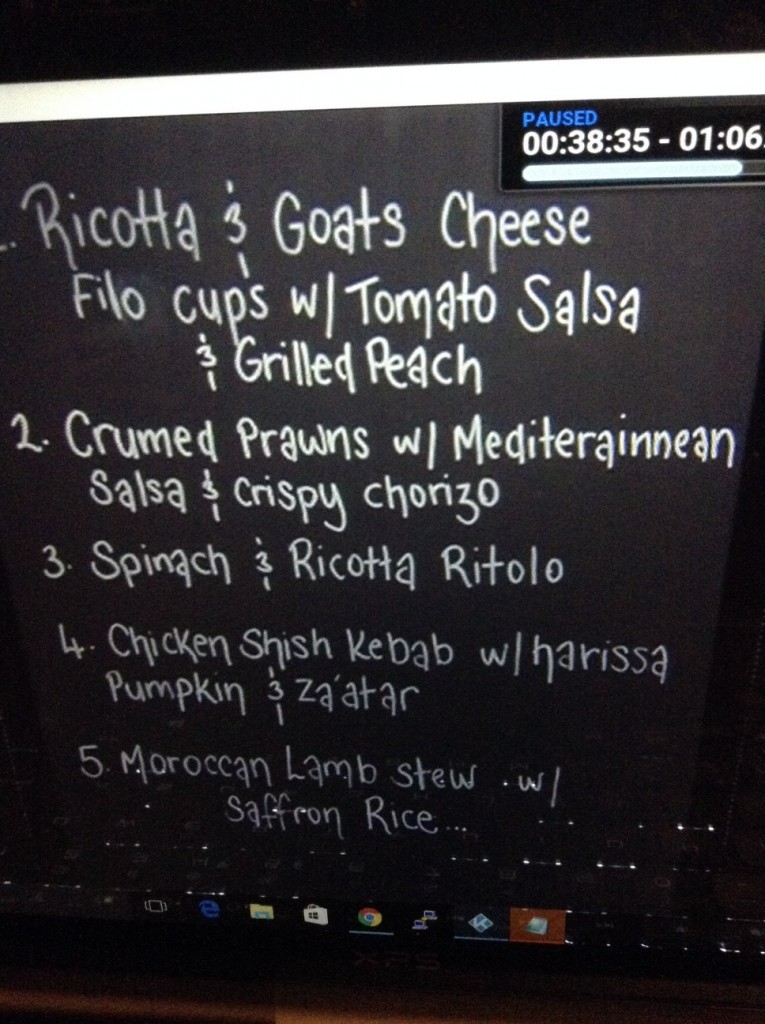 PAUSED
00:38:35 - 01:06
1. Ricotta & Goats Cheese
Filo cups w/ Tomato Salsa
& Grilled Peach
2. Crumed Prawns w/ Mediterainnean
Salsa & Crispy chorizo
3. Spinach & Ricotta Ritolo
4. Chicken Shish Kebab w/ harissa
Pumpkin & Za'atar
5. Moroccan Lamb Stew w/
Saffron Rice...
XPS